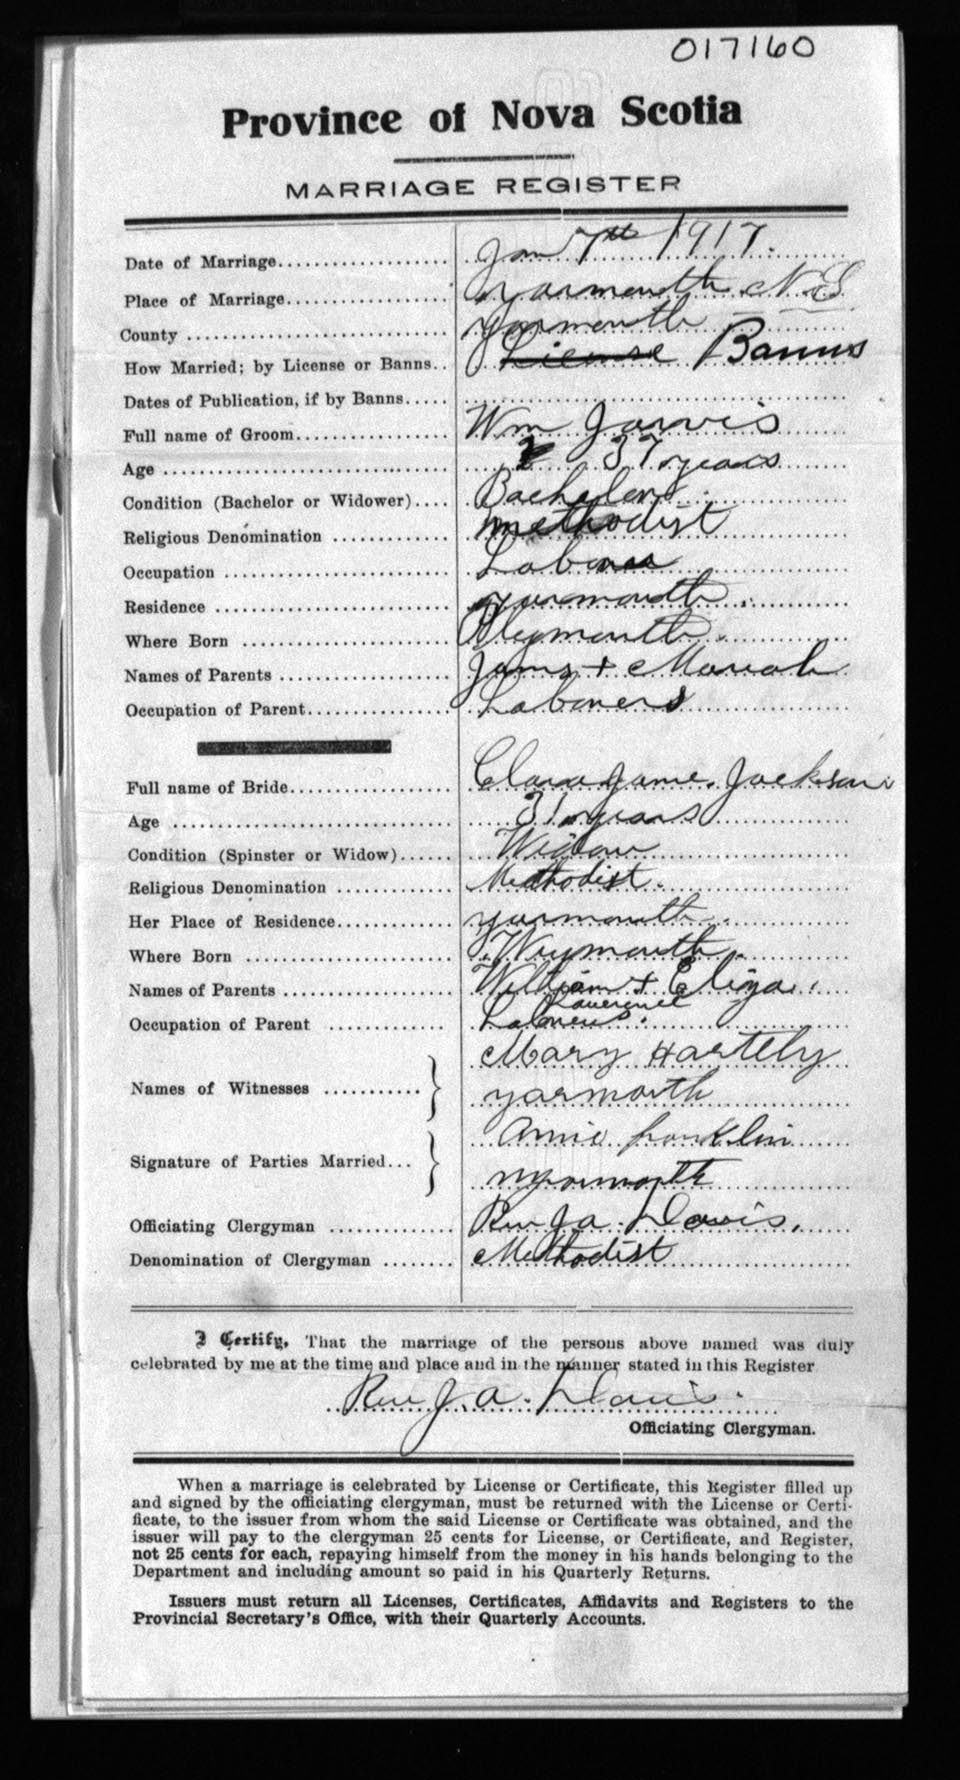 017160
Province of Nova Scotia
MARRIAGE REGISTER
Date of Marriage Jan 7th 1917.
Place of Marriage Yarmouth N.S
County Yarmouth
How Married; by License or Banns License Banns
Dates of Publication, if by Banns
Full name of Groom Wm Jarvis
Age 37 years
Condition (Bachelor or Widower) Bachelor
Religious Denomination Methodist
Occupation Laborer
Residence Yarmouth
Where Born Weymouth
Names of Parents James + Mariah
Occupation of Parent Laborers
Full name of Bride Clara Jane Jackson
Age 31 years
Condition (Spinster or Widow) Widow
Religious Denomination Methodist.
Her Place of Residence Yarmouth.
Where Born Weymouth.
Names of Parents William + Eliza
Lawrence
Occupation of Parent Laborers.
Mary Hartely
Names of Witnesses
Yarmouth
Annie franklin
Signature of Parties Married
Yarmouth
Officiating Clergyman Rev J a. Davis.
Denomination of Clergyman Methodist
I Certify, That the marriage of the persons above named was duly
celebrated by me at the time and place and in the manner stated in this Register
Rev J. a. Davis.
Officiating Clergyman.
When a marriage is celebrated by License or Certificate, this Register filled up
and signed by the officiating clergyman, must be returned with the License or Certi-
ficate, to the issuer from whom the said License or Certificate was obtained, and the
issuer will pay to the clergyman 25 cents for License, or Certificate, and Register,
not 25 cents for each, repaying himself from the money in his hands belonging to the
Department and including amount so paid in his Quarterly Returns.
Issuers must return all Licenses, Certificates, Affidavits and Registers to the
Provincial Secretary's Office, with their Quarterly Accounts.